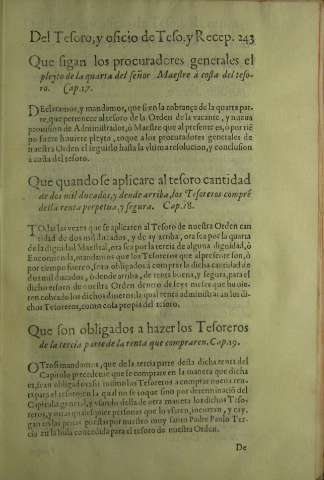 Del Tesoro, y oficio de Teso. y Recep. 243
Que sigan los procuradores generales el
pleyto de la quarta del señor Maestre à costa del teso-
ro. Cap. 17.
DEclaramos, y mandamos, que si en la cobrança de la quarta par-
te, que pertenece al tesoro de la Orden de la vacante, y nueua
prouision de Administrador, ò Maestre que al presente es, o por tiē
po fuere huuiere pleyto, toque a los procuradores generales de
nuestra Orden el seguirlo hasta la vltima resolucion, y conclusion
à costa del tesoro.
Que quando se aplicare al tesoro cantidad
de dos mil ducados, y dende arriba, los Tesoreros compré
della renta perpetua, y segura. Cap. 18.
TOdas las vezes que se aplicaren al Tesoro de nuestra Orden can
tidad de dos mil ducados, y de ay arriba, ora sea por la quarta
de la dignidad Maestral, ora sea por la tercia de alguna dignidad, ò
Encomienda, mandamos que los Tesoreros que al presente son, ò
por tiempo fueren, sean obligados à comprar la dicha cantidad de
dos mil ducados, ò dende arriba, de renta buena, y segura, para el
dicho tesoro de nuestra Orden dentro de seys meses que hu uie-
ren cobrado los dichos dineros: la qual renta administraràn los di-
chos Tesoreros, como cosa propia del tesoro.
Que son obligados a hazer los Tesoreros
de la tercia parte de la renta que compraren. Cap. 19.
OTrosi mandamos, que de la tercia parte desta dicha renta del
Capitulo precedente que se comprare en la manera que dicha
es, sean obligados assi mismo los Tesoreros a comprar nueua ren-
ta para el tesoro: en la qual no se toque sino por determinació del
Capitulo general, y vsando della de otra manera los dichos Teso-
reros, y otras qualesquier personas que lo vsaren, incurran, y cay-
gan en las penas puestas por nuestro muy santo Padre Paulo Ter-
cio en la bula concedida para el tesoro de nuestra Orden.
De